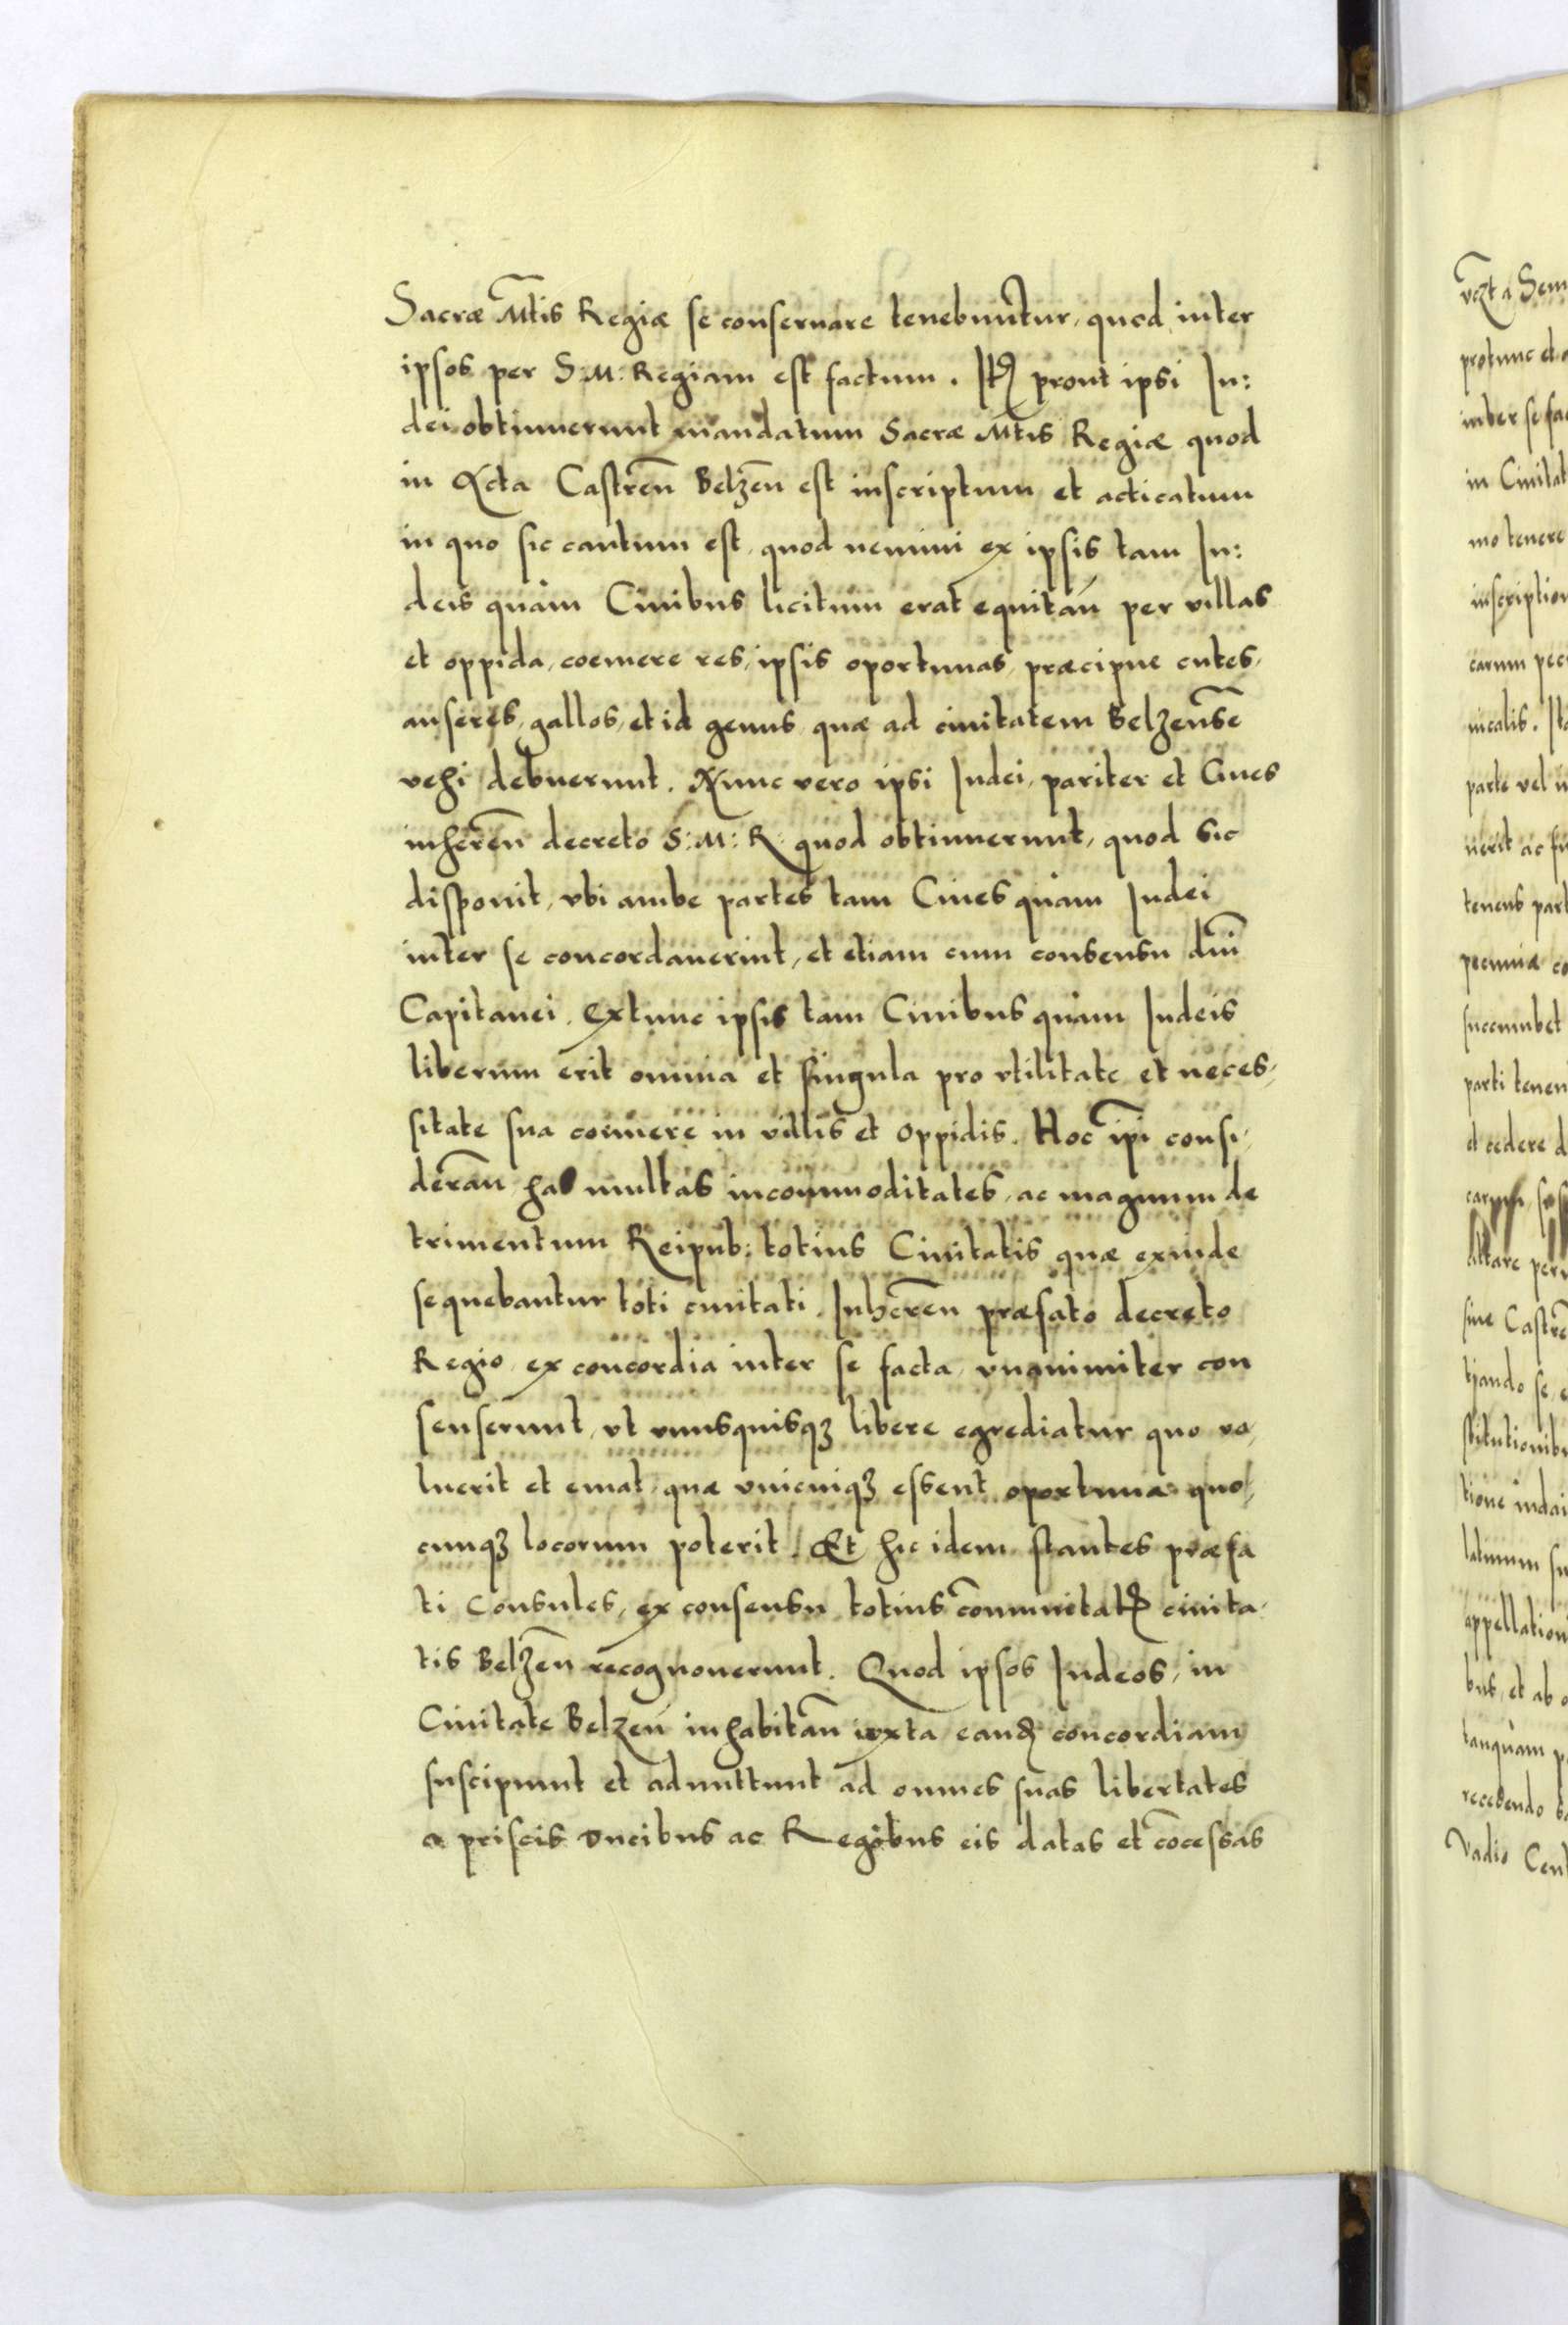 Sacræ Mtis Regiæ se conseruare tenebuntur, quod inter
ipsos per S: M: Regiam est factum. Itẽ prout ipsi Iu:
dei obtinuerunt mandatum Sacræ Mtis Regiæ quod
in Acta Castreñ Belzeñ est inscriptum et acticatum
in quo sic cautum est, quod nemini ex ipsis tam Iu:
deis quàm Ciuibus licitum erat equitañ per villas
et oppida, coemere res, ipsis oportunas, præcipue cutes,
anseres, gallos, et id genus quæ ad ciuitatem Belzensẽ
vehi debuerunt. Nunc vero ipsi Iudei, pariter et Ciues
inhereñ decreto S: M: R: quod obtinuerunt, quod sic
disponit, vbi ambe partes tam Ciues quàm Iudei
inter se concordauerint, et etiam cum consensu dñi
Capitanei. Extunc ipsis tam Ciuibus quàm Iudeis
liberum erit omnia et singula pro vtilitate et neces,
sitate sua coemere in villis et oppidis. Hoc ipi consi,
derañ has multas incommoditates, ac magnum de
trimentum Reipub: totius Ciuitatis quæ exinde
sequebantur toti ciuitati. Inhereñ præfato decreto
Regio, ex concordia inter se facta, vnanimiter con
senserunt, vt vnusquisqz libere egrediatur quo vo,
luerit et emat, quæ vnicuiqz essent oportuna quo,
cunqz locorum poterit. Et hic idem stantes præfa
ti Consules, ex consensu totius cõmunitatis ciuita,
tis Belzeñ recognouerunt. Quod ipsos Iudeos, in
Ciuitate Belzeñ inhabitañ iuxta eandẽ concordiam
suscipiunt et admittunt ad omnes suas libertates
a priscis Ducibus ac Regibus eis datas et cõcessas
vczt a Sem
protunc et
inter se fac
in Ciuitat
mo tenere
inscription
carum pec
nicalis. Itẽ
parte vel
uerit ac
tenens part
pecuniæ co
succumbet
parti tenen
et cedere d
siue Castrẽ
tjando se,
stitutionib
tione
latinum su
appellation
bus, et ab
tanquàm p
recedendo
Vadio Cent